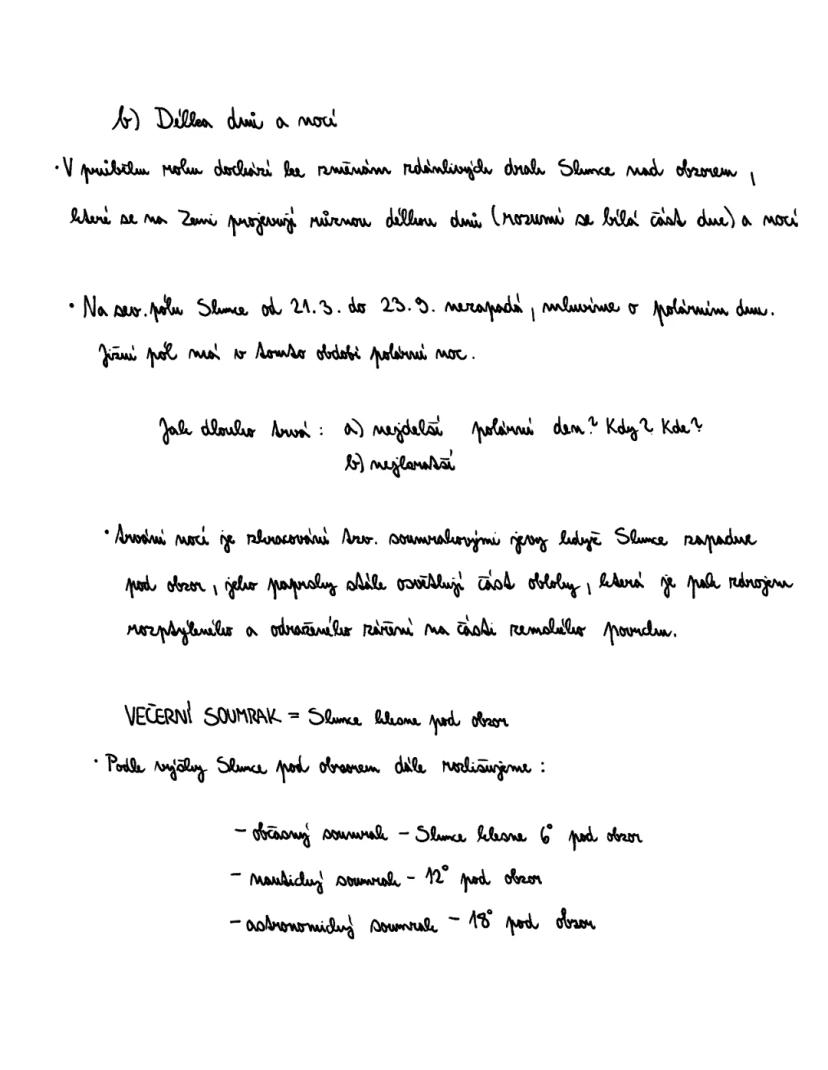 b) Délka dní a nocí
• V průběhu roku dochází ke změnám zdánlivých drah Slunce nad obzorem,
které se na Zemi projevují různou délkou dní (rozumí se bílá část dne) a nocí
• Na sev. pólu Slunce od 21.3. do 23.9. nezapadá, mluvíme o polárním dnu.
Jižní pól má v tomto období polární noc.
Jak dlouho trvá: a) nejdelší polární den? Kdy? Kde?
b) nejkratší
• trvání nocí je zkracování tzv. soumrakovými jevy když Slunce zapadne
pod obzor, jeho paprsky stále osvětlují část oblohy, která je pak zdrojem
rozptýleného a odraženého záření na části zemského povrchu.
VEČERNÍ SOUMRAK = Slunce klesne pod obzor
• Podle výšky Slunce pod obzorem dále rozlišujeme:
- občasný soumrak - Slunce klesne 6° pod obzor
- nautický soumrak - 12° pod obzor
- astronomický soumrak - 18° pod obzor